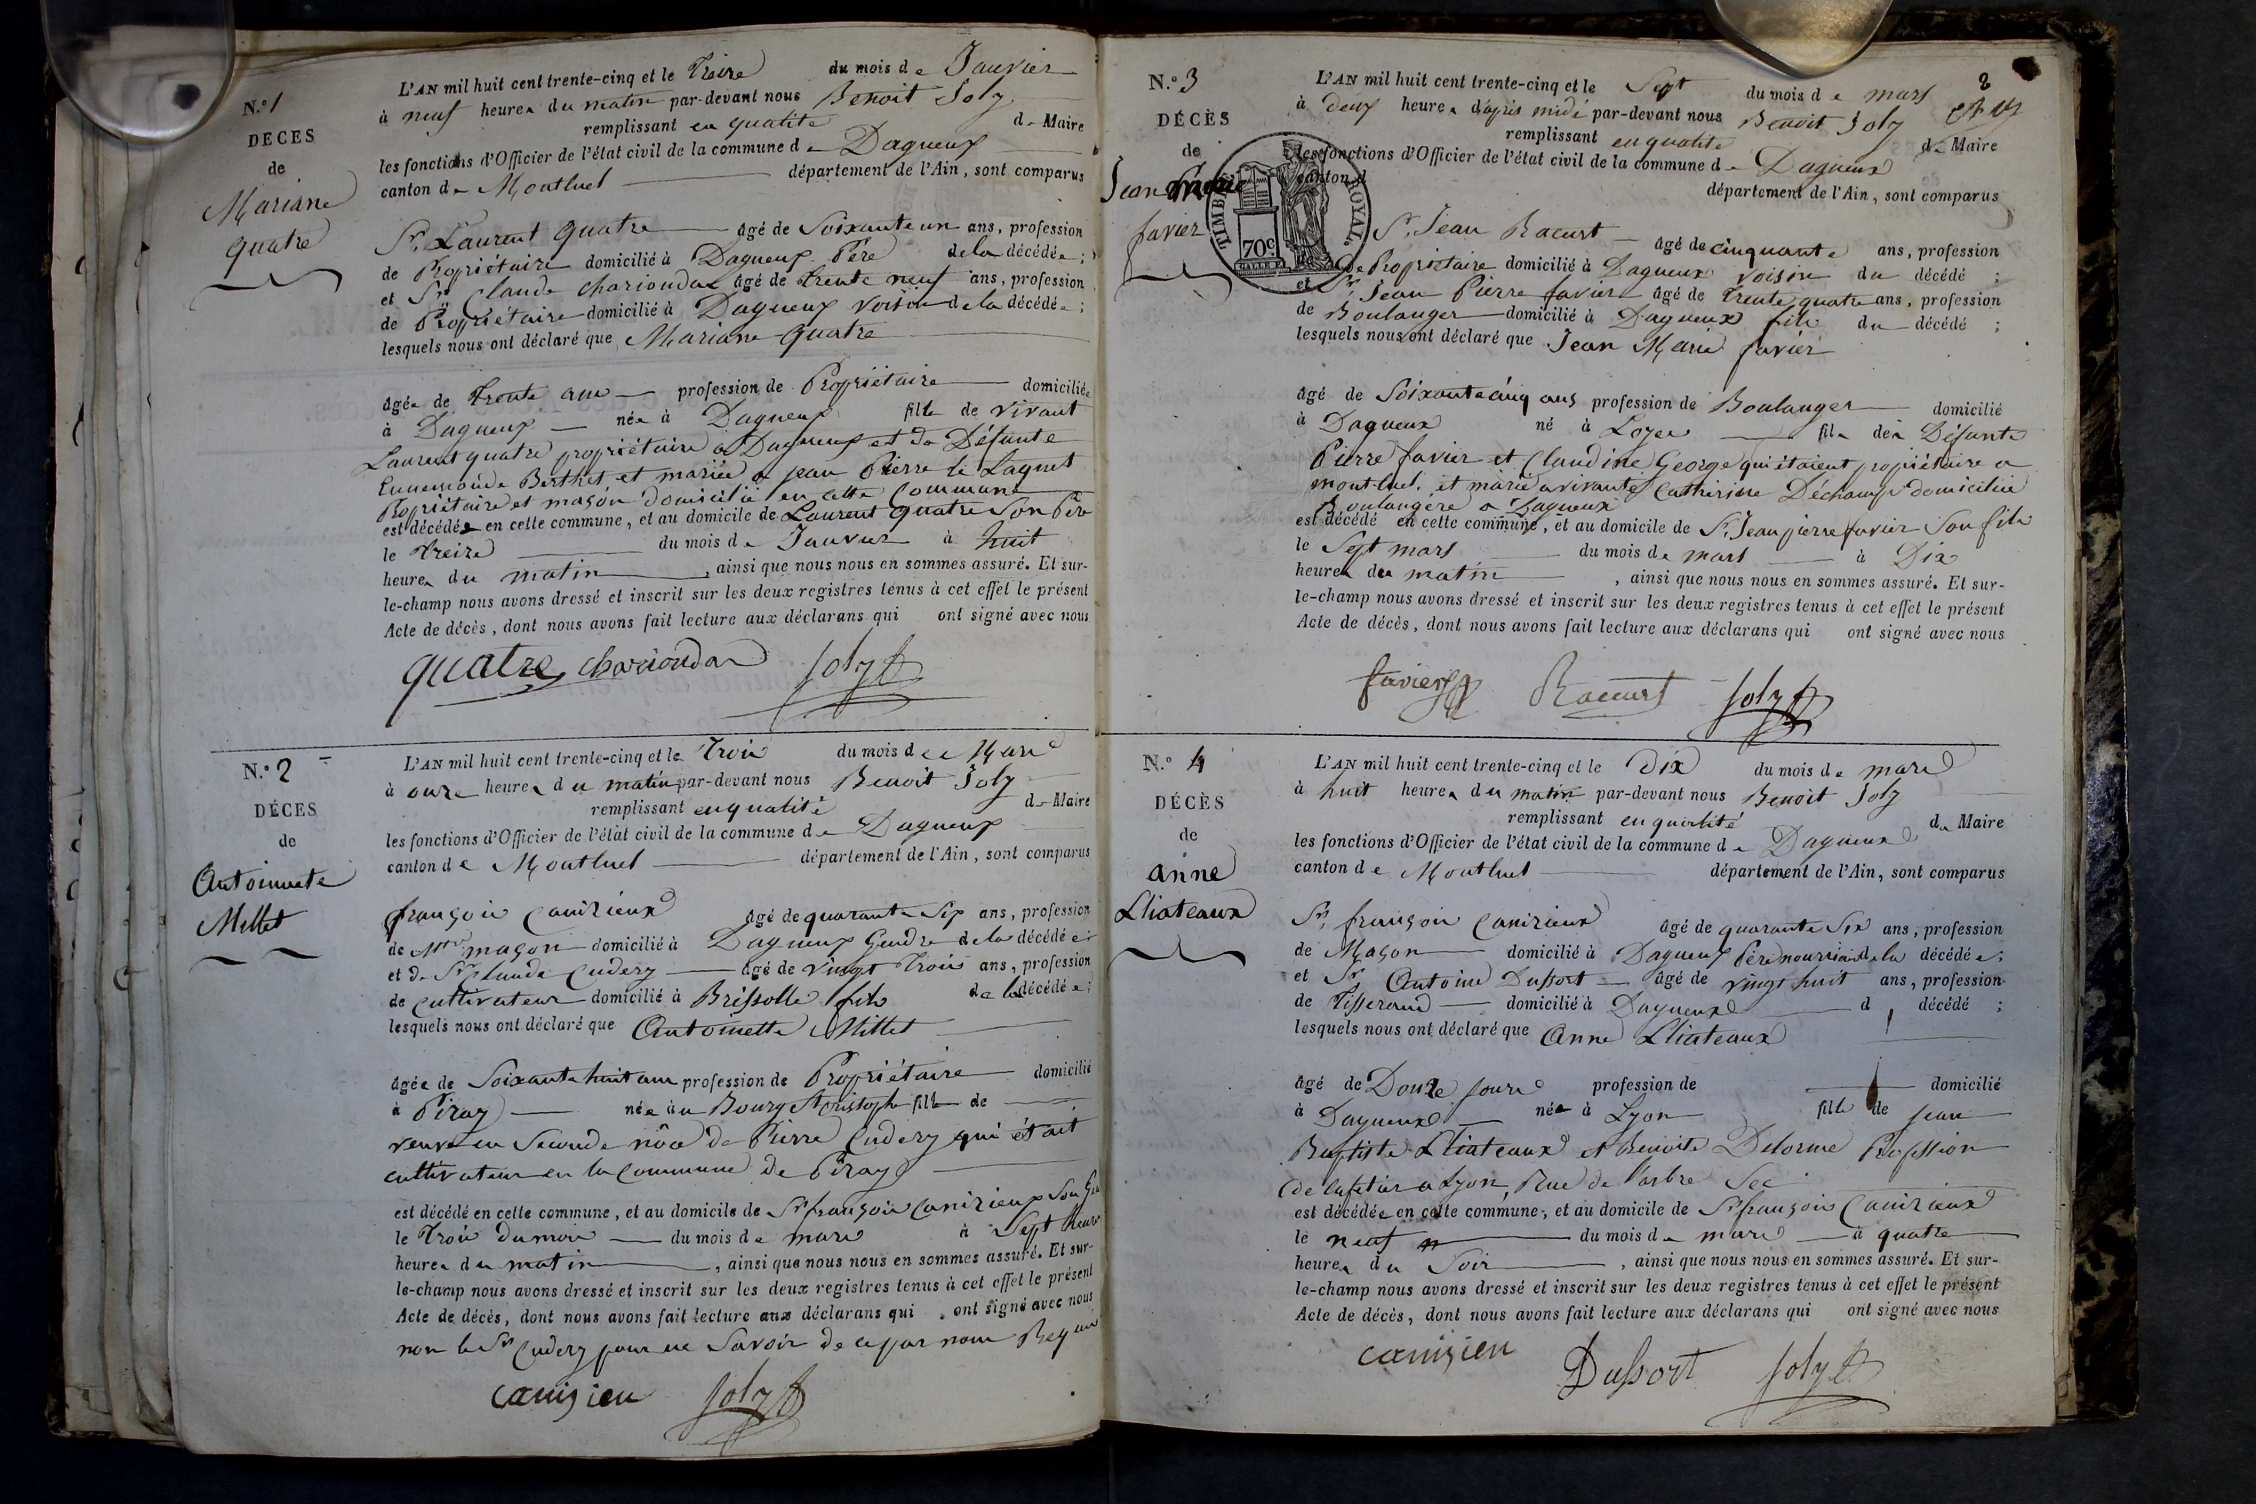 N.º 1
DÉCÈS
de
Mariane
quatre
L'AN mil huit cent trente-cinq et le treize du mois de Janvier
à neuf heures du matin par-devant nous Benoit Joly
remplissant en qualité de Maire
les fonctions d'Officier de l'état civil de la commune de Dagneux
canton de Montluel département de l'Ain, sont comparus
Sr. Laurent quatre âgé de Soixante un ans, profession
de Propriétaire domicilié à Dagneux Père de la décédée ;
et Sr Claude chariondas âgé de trente neuf ans, profession
de Propriétaire domicilié à Dagneux voisin de la décédée ;
lesquels nous ont déclaré que Mariane quatre
âgée de trente ans profession de Propriétaire domiciliée
à Dagneux née à Dagneux fille de vivant
Laurent quatre propriétaire a Dagneux et de Défunte
Ennemonde Berthet et mariée a jean Pierre le Lagnet
Propriétaire et maçon domicilié en cette Commune
est décédée en cette commune, et au domicile de Laurent quatre Son Père
le treize du mois de Janvier à huit
heures du matin, ainsi que nous nous en sommes assuré. Et sur-
le-champ nous avons dressé et inscrit sur les deux registres tenus à cet effet le présent
Acte de décès, dont nous avons fait lecture aux déclarans qui ont signé avec nous
quatre chariondas Joly
N.º 2
DÉCES
de
Antoinnete
Millet
L'AN mil huit cent trente-cinq et le trois du mois de Mars
à onze heures du matin par-devant nous Benoit Joly
remplissant en qualité de Maire
les fonctions d'Officier de l'état civil de la commune de Dagneux
canton de Montluel département de l'Ain, sont comparus
françois Canizieux âgé de quarante Six ans, profession
de Mtre maçon domicilié à Dagneux Gendre de la décédée
et de Sr Claude Cudery âgé de vingt trois ans, profession
de cultivateur domicilié à Bressolle fils de la décédée ;
lesquels nous ont déclaré que Antoinette Millet
âgée de Soixante huit ans profession de Propriétaire domicilié
à Pizay née à au Bourg St Cristophe fille de
veuve en Seconde nôce de Pierre Cudery qui était
cultivateur en la commune de Pizay
est décédé en cette commune, et au domicile de Sr françois Canizieux Son Gen
le trois du mois du mois de mars à Sept heure
heures du matin, ainsi que nous nous en sommes assuré. Et sur-
le-champ nous avons dressé et inscrit sur les deux registres tenus à cet effet le présent
Acte de décès, dont nous avons fait lecture aux déclarans qui ont signé avec nous
non le Sr Cudery pour ne Savoir de ce par nous Requis
canizieu Joly
2
N.º 3
DÉCÈS
de
Jean marie
favier
TIMBRE ROYAL.
70c.
L'AN mil huit cent trente-cinq et le Sept du mois de mars
à deux heures d'après midi par-devant nous Benoit Joly
remplissant en qualité de Maire
les fonctions d'Officier de l'état civil de la commune de Dagneux
canton d département de l'Ain, sont comparus
Sr. Jean Racurt âgé de cinquante ans, profession
de Propriétaire domicilié à Dagneux voisin du décédé ;
et Sr. Jean Pierre favier âgé de trente quatre ans, profession
de Boulanger domicilié à Dagneux fils du décédé ;
lesquels nous ont déclaré que Jean Marie favier
âgé de Soixante cinq ans profession de Boulanger domicilié
à Dagneux né à Loyes fils de Défunts
Pierre favier et Claudine George qui étaient propriétaire a
montluel, et marié a vivante Catherine Déchamp domiciliée
Boulangère a Dagneux
est décédé en cette commune, et au domicile de Sr. Jean pierre favier Son fils
le Sept mars du mois de mars à Dix
heures du matin, ainsi que nous nous en sommes assuré. Et sur-
le-champ nous avons dressé et inscrit sur les deux registres tenus à cet effet le présent
Acte de décès, dont nous avons fait lecture aux déclarans qui ont signé avec nous
favier Racurt Joly
N.º 4
DÉCÈS
de
anne
Lliateaux
L'AN mil huit cent trente-cinq et le Dix du mois de mars
à huit heures du matin par-devant nous Benoit Joly
remplissant en qualité de Maire
les fonctions d'Officier de l'état civil de la commune de Dagneux
canton de Montluel département de l'Ain, sont comparus
Sr. françois Canizieux âgé de quarante Six ans, profession
de Maçon domicilié à Dagneux Père nourricier de la décédée ;
et Sr Antoine Dussort âgé de vingt huit ans, profession
de Tisserand domicilié à Dagneux d décédé ;
lesquels nous ont déclaré que Anne Lliateaux
âgé de Douze jours profession de domicilié
à Dagneux née à Lyon fille de jean
Baptiste Lliateaux et Benoite Delorme Profession
de cafetier a Lyon, Rue de l'arbre Sec
est décédée en cette commune, et au domicile de Sr françois Canizieux
le neuf du mois de mars à quatre
heures du Soir, ainsi que nous nous en sommes assuré. Et sur-
le-champ nous avons dressé et inscrit sur les deux registres tenus à cet effet le présent
Acte de décès, dont nous avons fait lecture aux déclarans qui ont signé avec nous
canizieu Dussort Joly